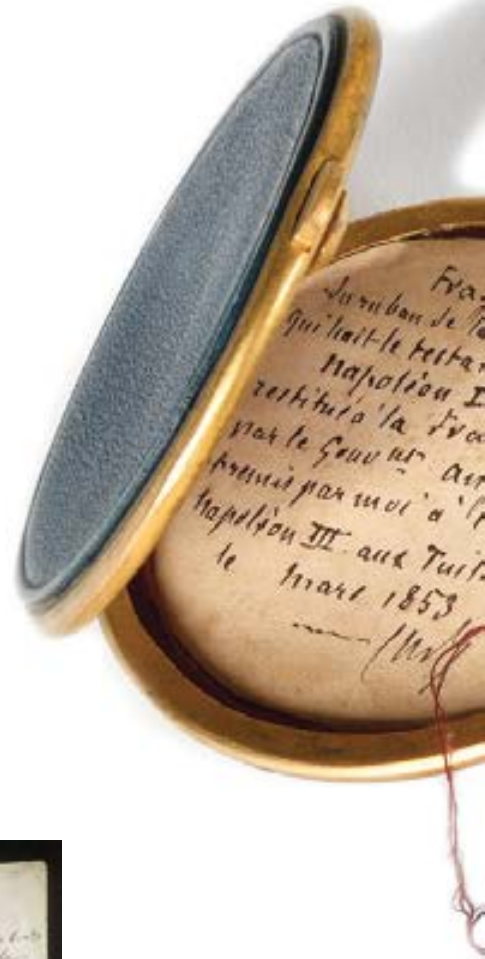 Fra
du ruban de
qui liait le testa
Napoléon I
restitué à la Fra
par le Gouv^nt an
remis par moi à l'
Napoléon III aux Tuil
le mars 1853